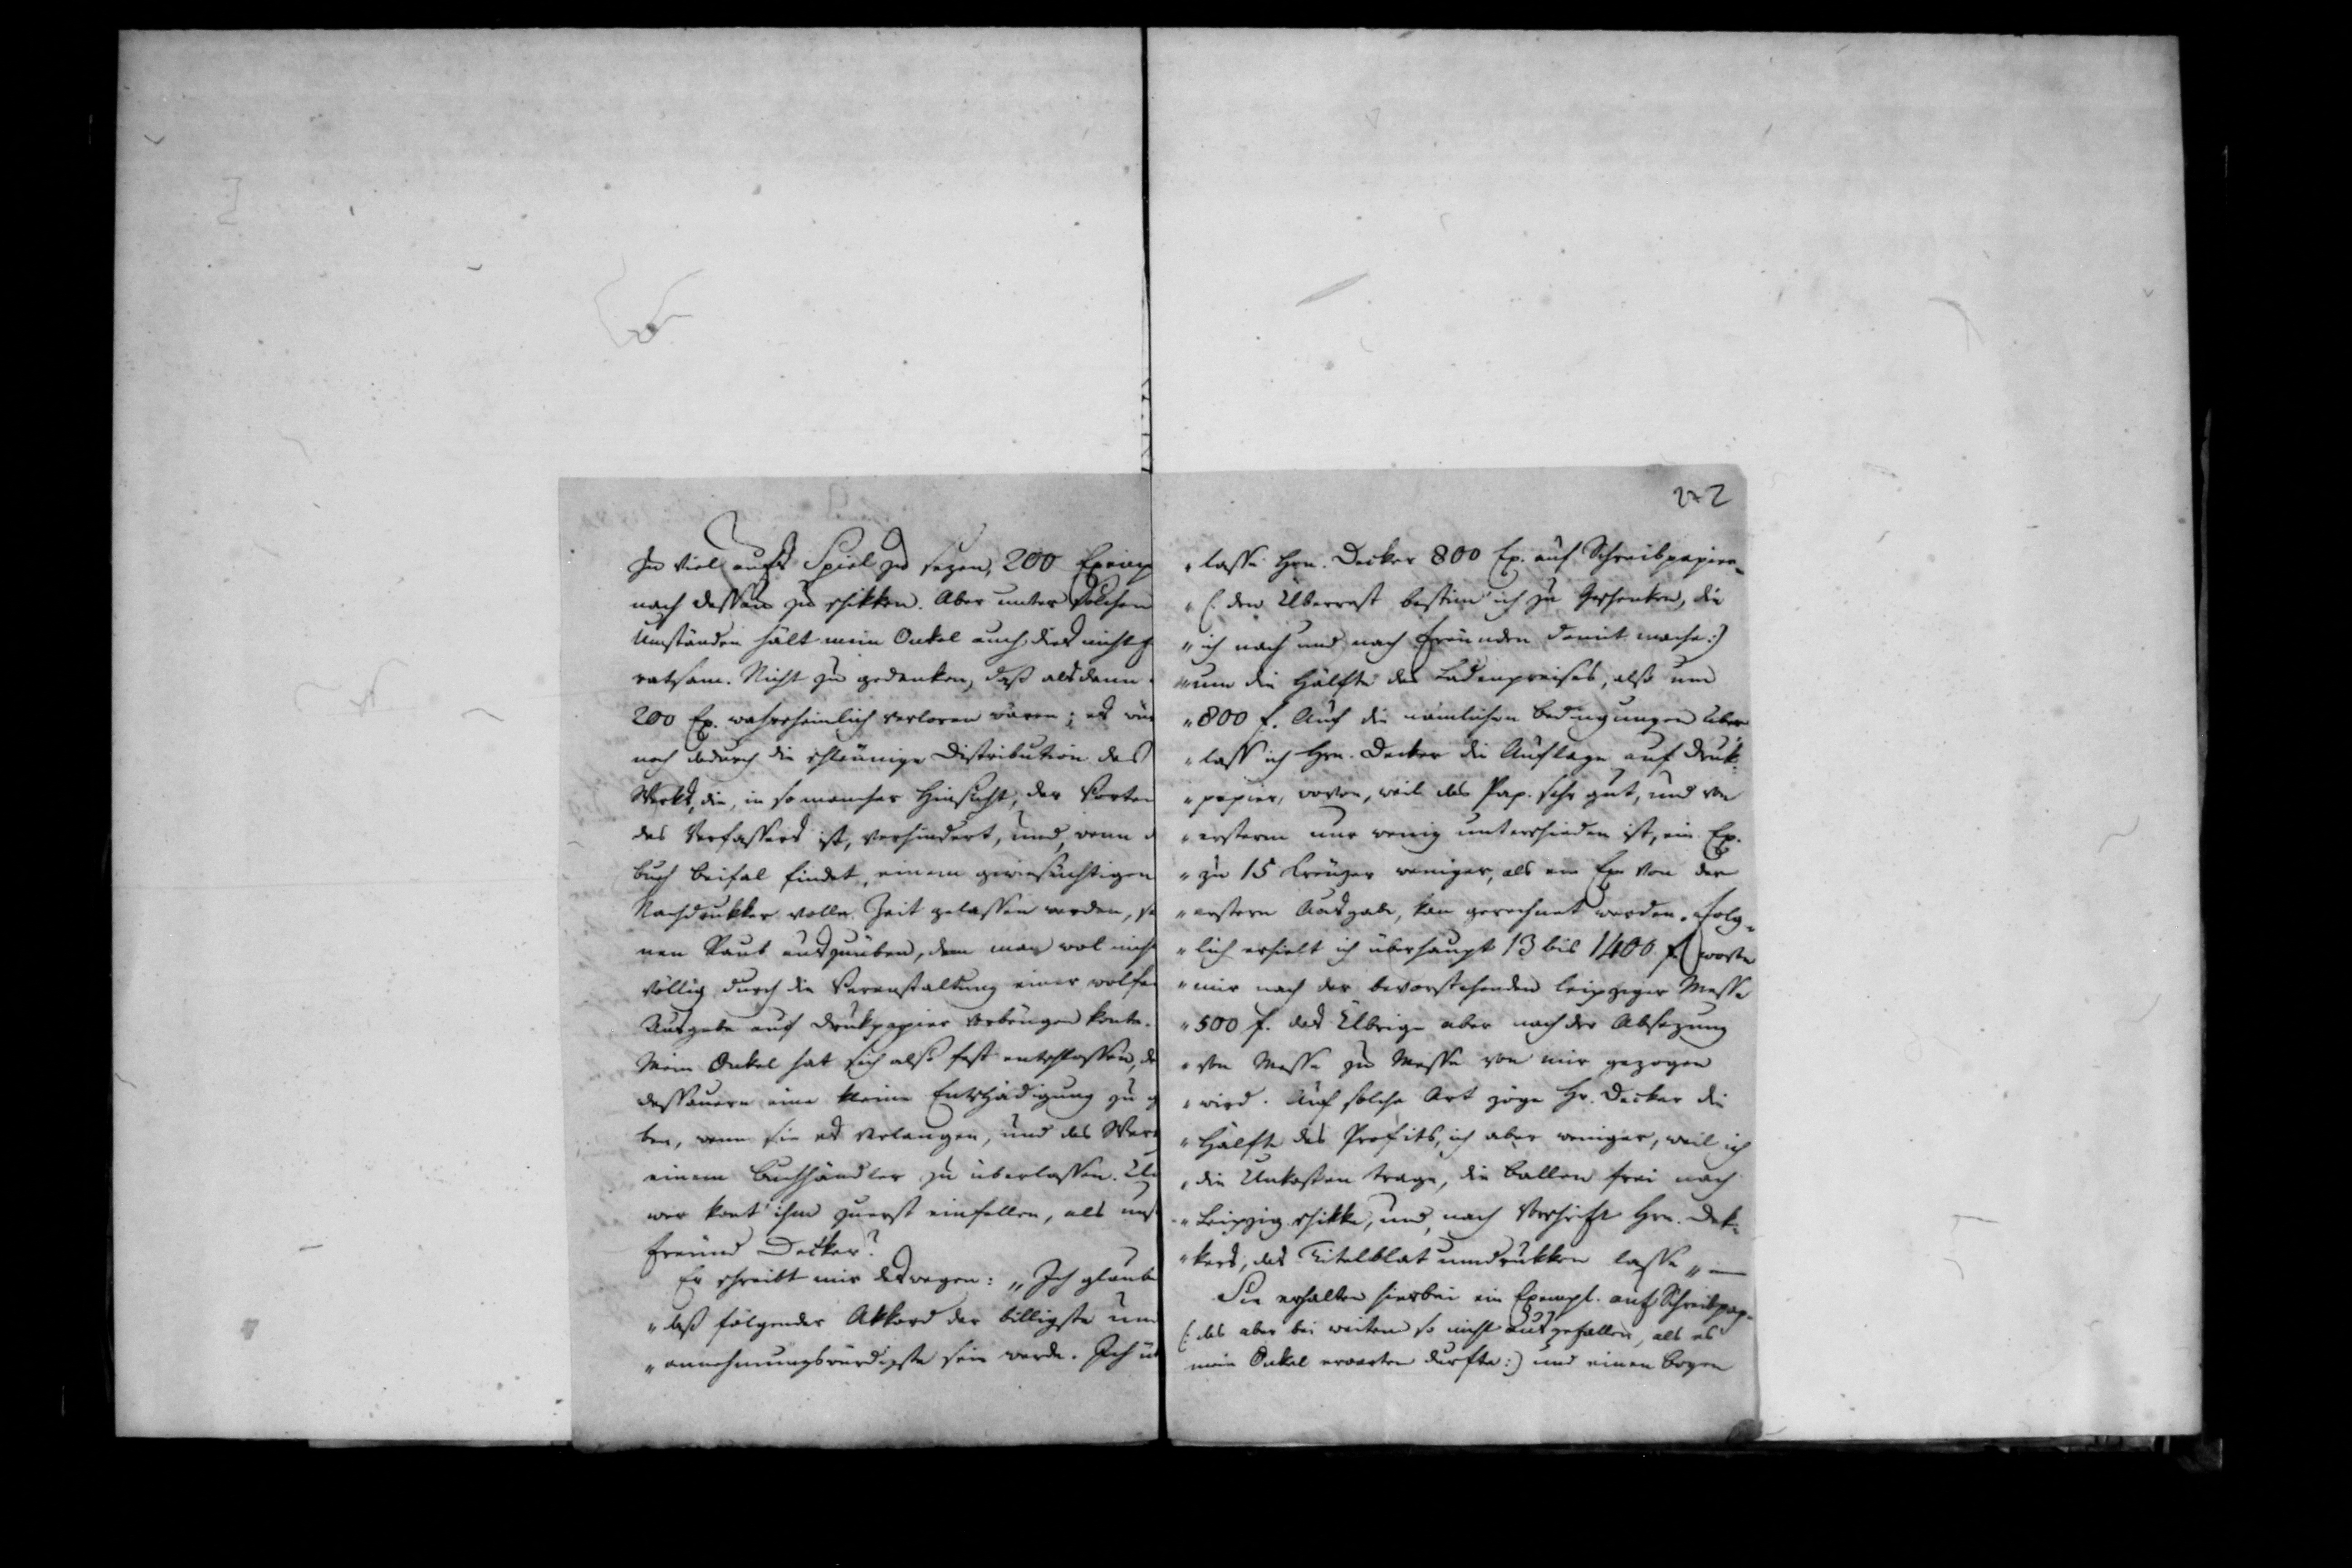 zu viel aufs Spiel zu sezen, 200 Exemp
nach Dessau zu schikken. Aber unter solchen
Umständen hält mein Onkel auch dies nicht
ratsam. Nicht zu gedenken, daß alsdann
200 Ex. wahrscheinlich verloren wären; es wür
noch dadurch die schleunige Distribution des
Werks, die, in so mancher Hinsicht, der Vorteil
des Verfassers ist, verhindert, und, wenn d
Buch Beifal findet, einem gewinsüchtigen
Nachdrukker volle Zeit gelassen werden, sei
nen Raub auszuüben, dem man wol nicht
völlig durch die Veranstaltung einer wolfei
Ausgabe auf Drukpapier vorbeugen konte.
Mein Onkel hat sich also fest entschlossen, de
Dessauern eine kleine Entschädigung zu g
ben, wenn sie es verlangen, und das Werk
einem Buchhändler zu überlassen. Un
wer kont' ihm zuerst einfallen, als uns
Freund Decker?
Er schreibt mir deswegen: „Ich glaube
„daß folgender Akkord der billigste und
„annehmungswürdigste sein werde. Ich üb
272
„lasse Hrn. Decker 800 Ex. auf Schreibpapier
„(: den Überrest bestim' ich zu Geschenken, die
„ich nach und nach Freunden damit mache:)
„um die Hälfte des Ladenpreises, also um
„800 f. Auf die nämlichen Bedingungen über
„lass' ich Hrn. Decker die Auflage auf Druk-
„papier, wovon, weil das Pap. sehr gut, und von
„ersterm nur wenig unterschieden ist, ein Ex.
„zu 15 Kreuzer weniger, als ein Ex. von der
„erstern Ausgabe, kan gerechnet werden. Folg-
„lich erhielt ich überhaupt 13 bis 1400 f. wovon
„mir nach der bevorstehenden Leipziger Messe
„500 f. das Übrige aber nach der Absezung
„von Messe zu Messe von mir gezogen
„wird. Auf solche Art zöge Hr. Decker die
„Hälfte des Profits, ich aber weniger, weil ich
„die Unkosten trage, die Ballen frei nach
„Leipzig schikke, und, nach Vorschrift Hrn. Dek-
„kers, das Titelblat umdrukken lasse„ —
Sie erhalten hierbei ein Exempl. auf Schreibpap.
(: das aber bei weitem so nicht ausgefallen, als es
mein Onkel erwarten durfte:) und einen Bogen